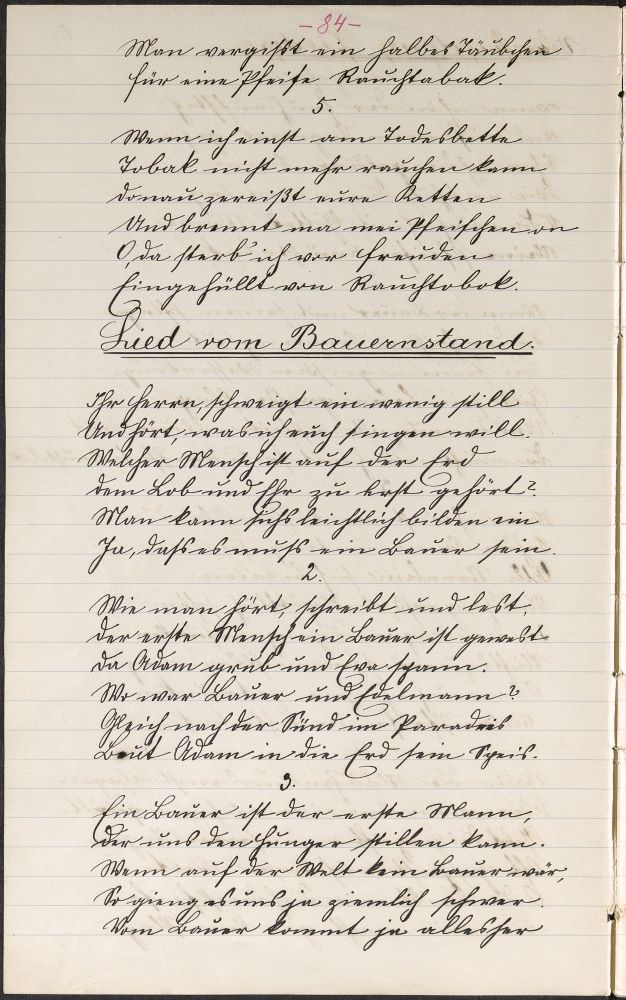 -84-
Man vergißt ein halbes Täubchen
für eine Pfeife Rauchtabak.
5.
Wenn ich einst am Todesbette
Tobak nicht mehr rauchen kann
donau zereißt eure Ketten
Und brennt ma mei Pfeifchen on
O, da sterb' ich vor freuden
Eingehüllt von Rauchtobok.
Lied vom Bauernstand.
Ihr Herrn, schweigt ein wenig still
Und hört, was ich euch singen will.
Welcher Mensch ist auf der Erd
dem Lob und Ehr zu erst gehört?
Man kann sichs leichtlich bilden ein
Ja, dass es muss ein Bauer sein.
2.
Wie man hört, schreibt und lest,
der erste Mensch ein Bauer ist gewest
da Adam grub und Eva spann.
Wo war Bauer und Edelmann?
Gleich nach der Sünd im Paradeis
Baut Adam in die Erd sein Speis.
3.
Ein Bauer ist der erste Mann,
der uns den Hunger stillen kann.
Wenn auf der Welt kein Bauer wär,
So gieng es uns ja ziemlich schwer.
Vom Bauer kommt ja alles her